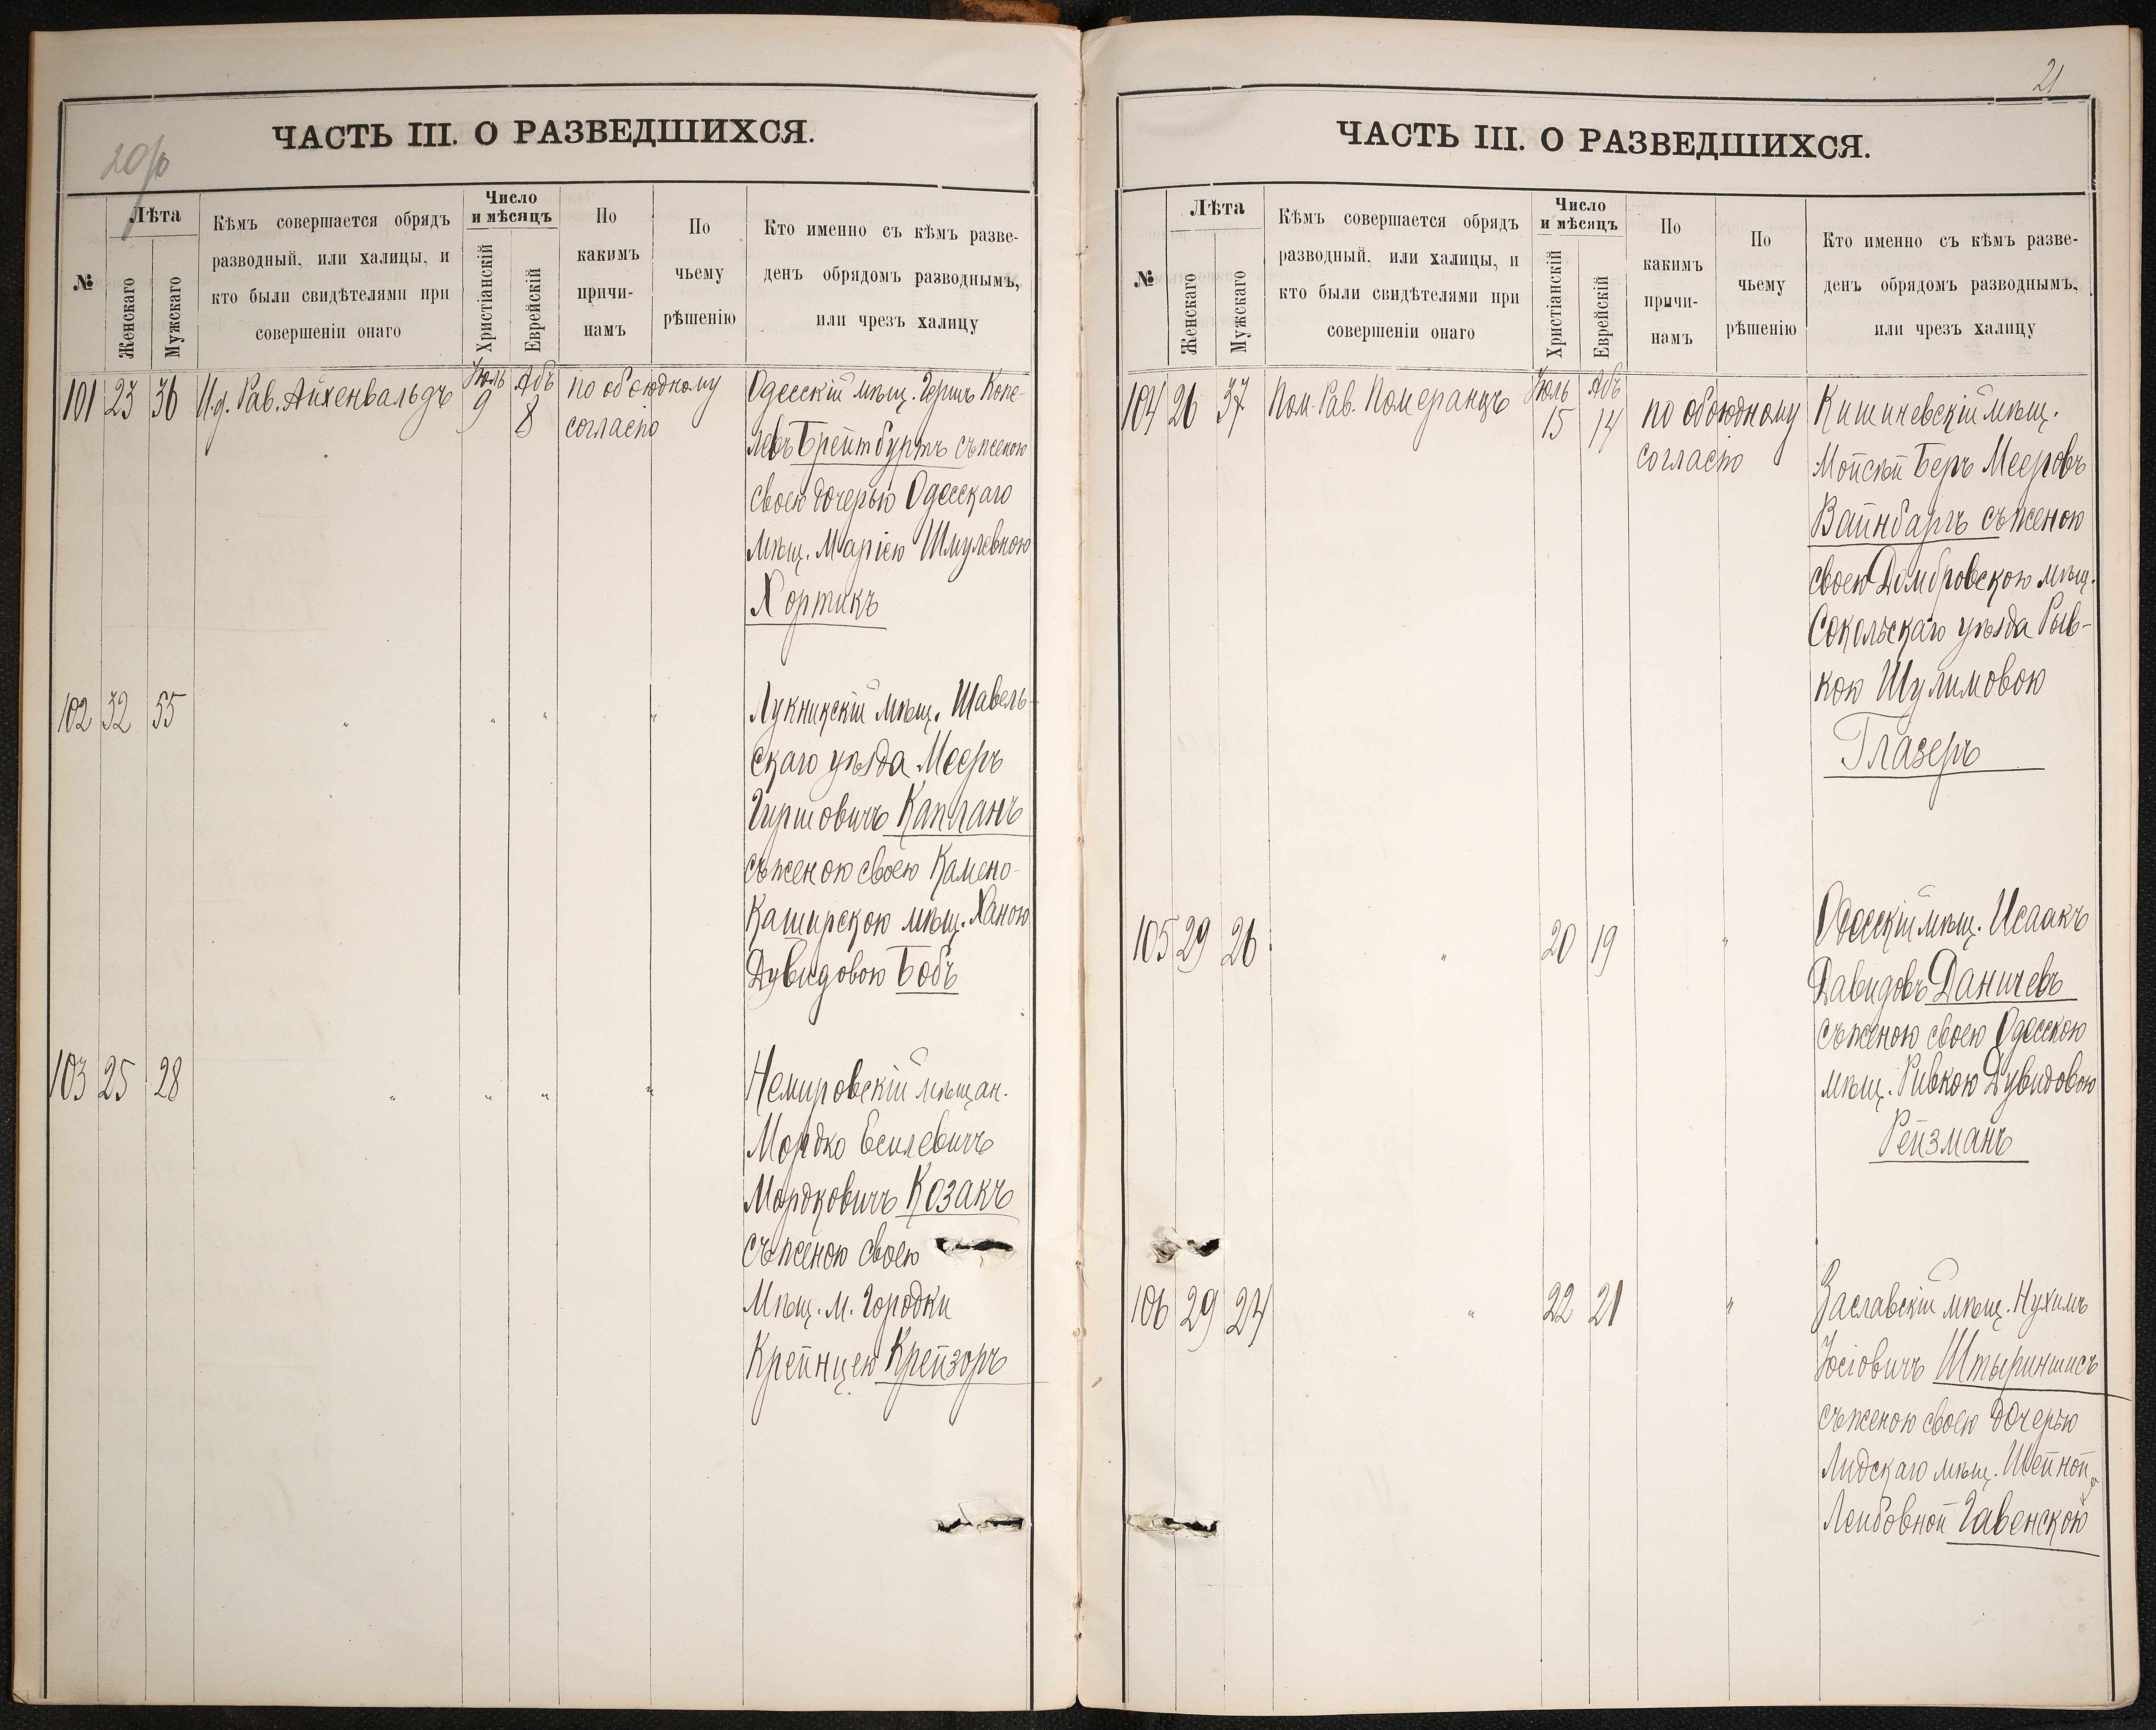 20/об
ЧАСТЬ III. О РАЗВЕДШИХСЯ.
№
Лѣта
Женскаго
Мужскаго
Кѣмъ совершается обрядъ
разводный, или халицы, и
кто были свидѣтелями при
совершеніи онаго
Число
и мѣсяцъ
Христіанскій
Еврейскій
По
какимъ
причи-
намъ
По
чьему
рѣшенію
Кто именно съ кѣмъ разве-
денъ обрядомъ разводнымъ,
или чрезъ халицу
101 23 36 И.д. Рав. Айхенвальдъ Іюль 9 Абъ 8
по обоюдному
согласію
Одесскій мѣщ. Гершъ Копе-
левъ Брейтбуртъ съ женою
своею дочерью Одесскаго
мѣщ. Маріею Шмулевною
Хортикъ
102 32 55 " " " "
Лукникскій мѣщ. Шавель-
скаго уѣзда Мееръ
Гиршовичъ Капланъ
съ женою своею Камено-
Каширскою мѣщ. Ханою
Дувидовою Бобъ
103 25 28 " " " "
Немировскій мѣщан.
Мордко Есилевичъ
Мордковичъ Козакъ
съ женою своею
Мѣщ. м. Городки
Крейнцею Крейзоръ
21
ЧАСТЬ III. О РАЗВЕДШИХСЯ.
№
Лѣта
Женскаго
Мужскаго
Кѣмъ совершается обрядъ
разводный, или халицы, и
кто были свидѣтелями при
совершеніи онаго
Число
и мѣсяцъ
Христіанскій
Еврейскій
По
какимъ
причи-
намъ
По
чьему
рѣшенію
Кто именно съ кѣмъ разве-
денъ обрядомъ разводнымъ,
или чрезъ халицу
104 26 37 Пом. Рав. Померанцъ Іюль 15 Абъ 14
по обоюдному
согласію
Кишиневскій мѣщ.
Мойсей Беръ Мееровъ
Вайнбаргъ съ женою
своею Домбровскою мѣщ.
Сокольскаго уѣзда Рыв-
кою Шулимовою
Глазеръ
105 29 26 " 20 19 "
Одесскій мѣщ. Исаакъ
Давидовъ Даничевъ
съ женою своею Одесскою
мѣщ. Ривкою Дувидовою
Рейзманъ
106 29 24 " 22 21 "
Заславскій мѣщ. Нухимъ
Іосіовичъ Штыриншисъ
съ женою своею дочерью
Лидскаго мѣщ. Шейной
Лейбовной Гавенскою